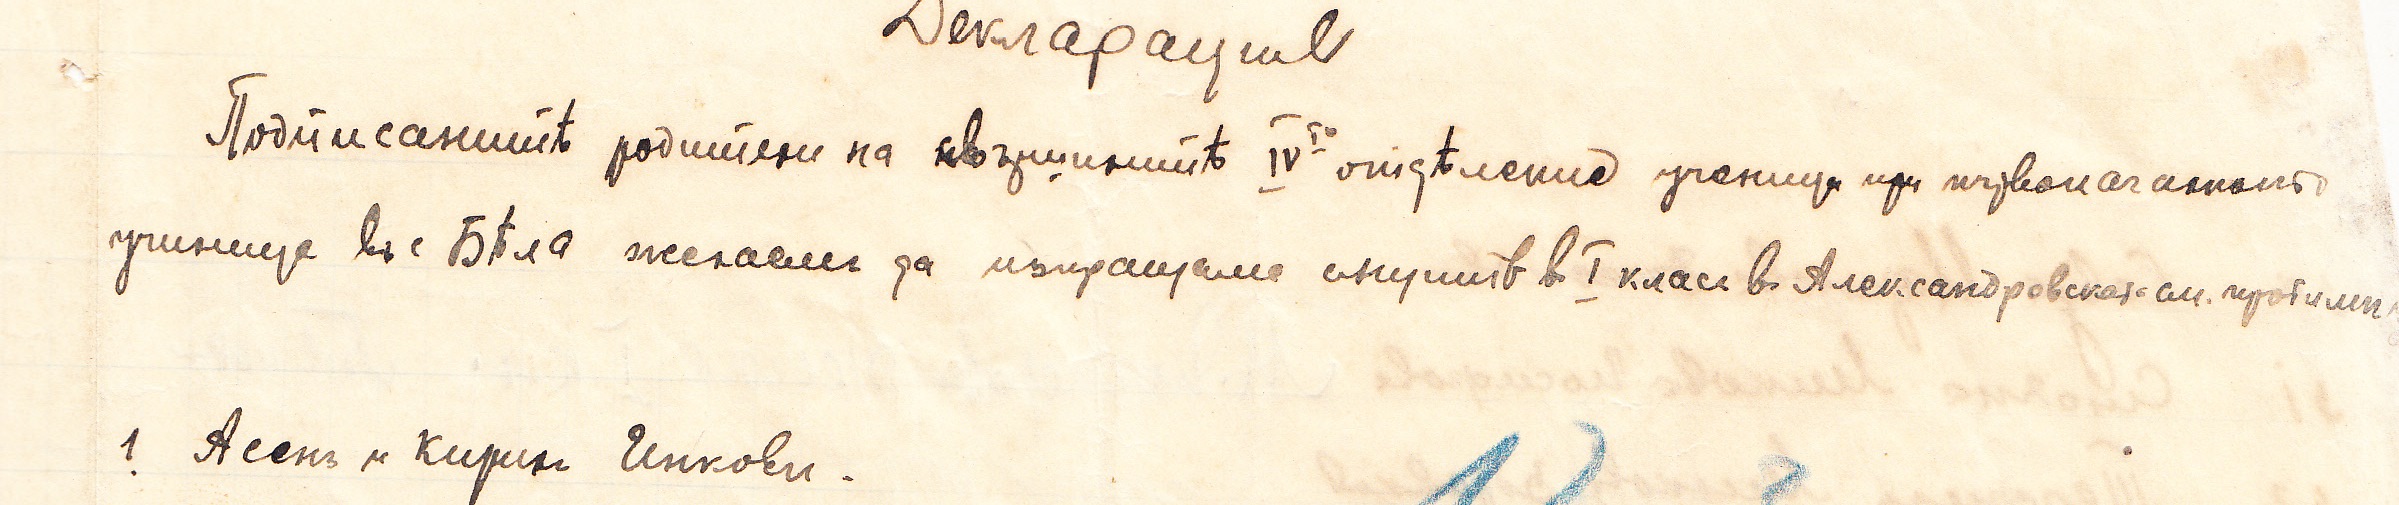 Декларация
Подписанитѣ родители на свършилитѣ IV то отдѣление ученици при първоначалното
училище въ с Бѣла желаемъ да изпращаме в I класъ въ Александровската см. прогимн
1. Асенъ и Кирилъ Енкови.